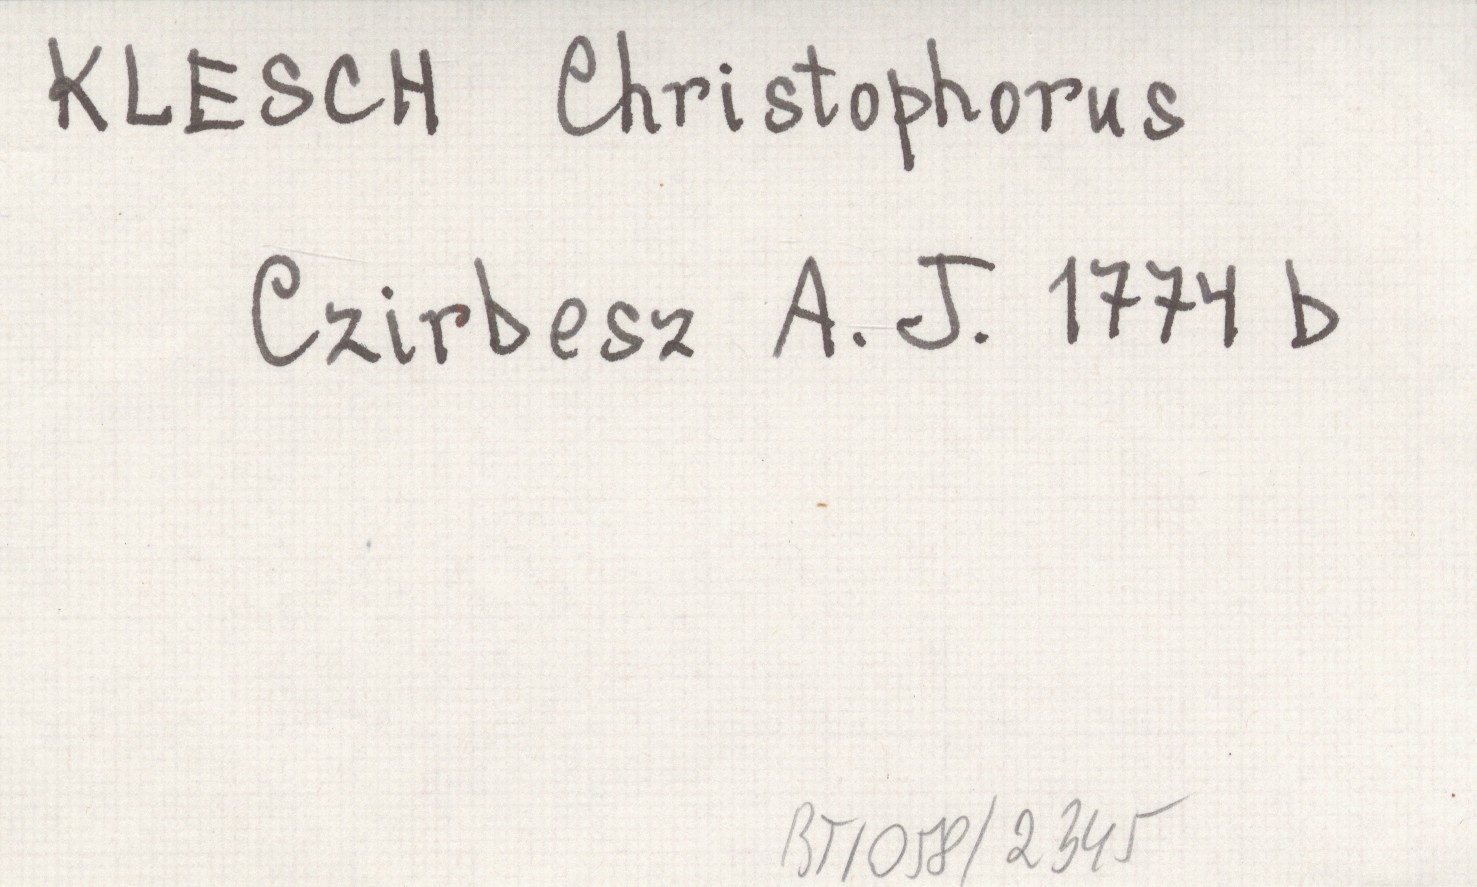 KLESCH Christophorus
Czirbesz A. J. 1774 b
BT1058/2345